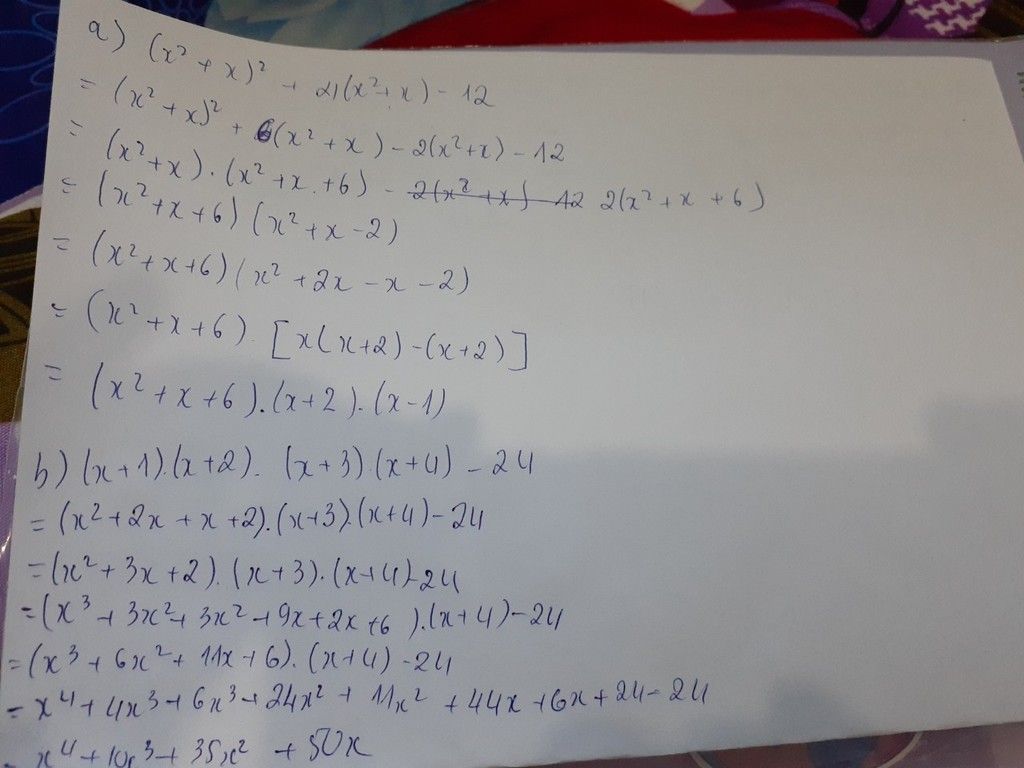 a) (x² + x)² + 4(x² + x) - 12
= (x² + x)² + 6(x² + x) - 2(x² + x) - 12
= (x² + x) . (x² + x + 6) - 2(x² + x) - 12 2(x² + x + 6)
= (x² + x + 6) (x² + x - 2)
= (x² + x + 6) (x² + 2x - x - 2)
= (x² + x + 6) . [x(x + 2) - (x + 2)]
= (x² + x + 6) . (x + 2) . (x - 1)
b) (x + 1) . (x + 2) . (x + 3) . (x + 4) - 24
= (x² + 2x + x + 2) . (x + 3) . (x + 4) - 24
= (x² + 3x + 2) . (x + 3) . (x + 4) - 24
= (x³ + 3x² + 3x² + 9x + 2x + 6) . (x + 4) - 24
= (x³ + 6x² + 11x + 6) . (x + 4) - 24
= x⁴ + 4x³ + 6x³ + 24x² + 11x² + 44x + 6x + 24 - 24
= x⁴ + 10x³ + 35x² + 50x